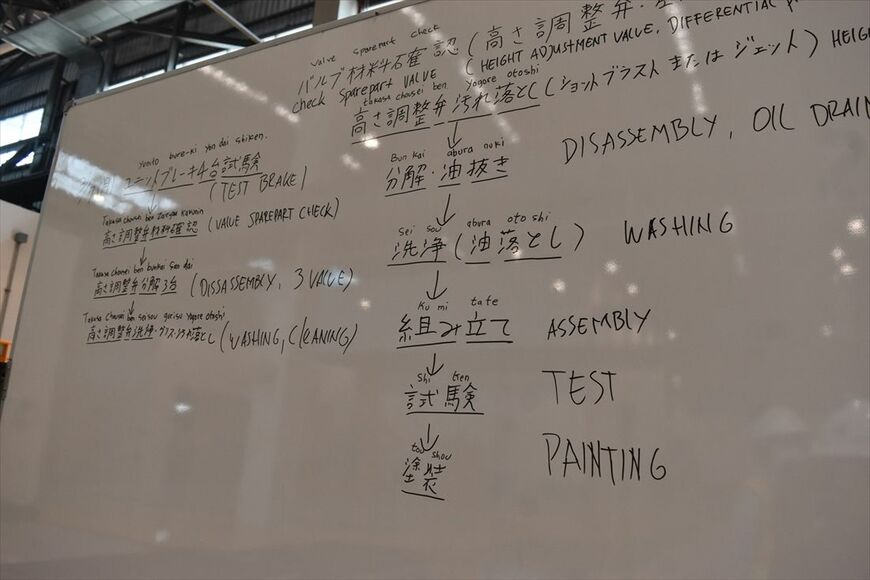 valve sparepart check
バルブ材料確認 (高さ調整弁・
check sparepart VALVE (HEIGHT ADJUSTMENT VALVE, DIFFERENTIAL
takasa chousei ben yogore otoshi
高さ調整弁 汚れ落とし(ショットブラスト または ジェット) HEIG
↓
Bun kai abura nuki
分解・油抜き DISASSEMBLY, OIL DRAIN
↓
Sei sou abura otoshi
洗浄(油落とし) WASHING
↓
Ku mi tate
組み立て ASSEMBLY
↓
Shi ken
試験 TEST
↓
to shou
塗装 PAINTING
Yunitto bure-ki yon dai shiken.
ユニットブレーキ4台試験
(TEST BRAKE)
↓
Takasa chousei ben Zairyou kakunin
高さ調整弁材料確認 (VALVE SPAREPART CHECK)
↓
Takasa chousei ben bunkai San dai
高さ調整弁分解3台 (DISSASSEMBLY, 3 VALVE)
↓
Takasa Chousei ben seisou gurisu yogore otoshi
高さ調整弁洗浄・グリス汚れ落とし (WASHING, CLEANING)